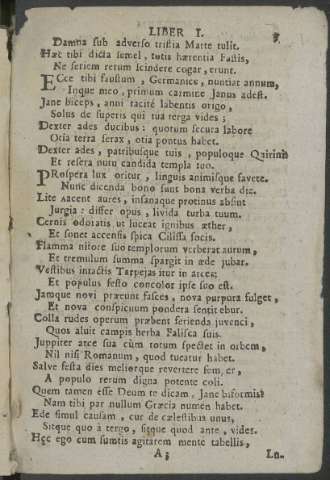 LIBER I. 5.
Damna sub adverso tristia Marte tulit.
Hæc tibi dicta semel, tutis hærentia Fastis,
Ne seriem rerum scindere cogar, erunt.
ECce tibi faustum, Germanice, nuntiat annum,
Inque meo, primum carmine Janus adest.
Jane biceps, anni tacitè labentis origo,
Solus de superis qui tua terga vides;
Dexter ades ducibus: quorum secura labore
Otia terra ferax, otia pontus habet.
Dexter ades, patribusque tuis, populoque Quirini
Et resera nutu candida templa tuo.
PRospera lux oritur, linguis animisque favete.
Nunc dicenda bono sunt bona verba die.
Lite vacent aures, insanaque protinus absint
Jurgia: differ opus, livida turba tuum.
Cernis odoratis ut luceat ignibus æther,
Et sonet accensis spica Cilissa focis.
Flamma nitore suo templorum verberat aurum,
Et tremulum summa spargit in æde jubar.
Vestibus intactis Tarpejas itur in arces:
Et populus festo concolor ipse suo est.
Jamque novi præeunt fasces, nova purpura fulget,
Et nova conspicuum pondera sentit ebur.
Colla rudes operum præbent ferienda juvenci,
Quos aluit campis herba Falisca suis.
Juppiter arce sua cùm totum spectet in orbem,
Nil nisi Romanum, quod tueatur habet.
Salve festa dies meliorque revertere semper,
A populo rerum digna potente coli.
Quem tamen esse Deum te dicam, Jane biformis?
Nam tibi par nullum Græcia numen habet.
Ede simul causam, cur de cælestibus unus,
Sitque quò à tergo, sitque quod ante, vides.
Hęc ego cum sumtis agitarem mente tabellis,
A3 Lu-